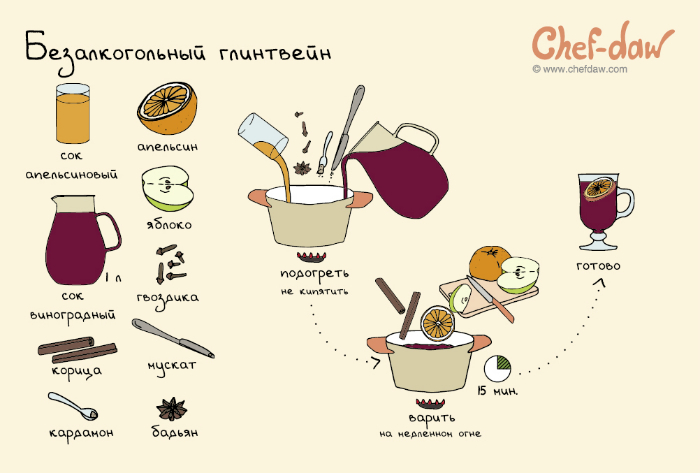 Безалкогольный глинтвейн
Chef-daw
© www.chefdaw.com
сок
апельсиновый
апельсин
яблоко
1 л
сок
виноградный
гвоздика
корица
мускат
кардамон
бадьян
подогреть
не кипятить
15 мин.
варить
на медленном огне
готово